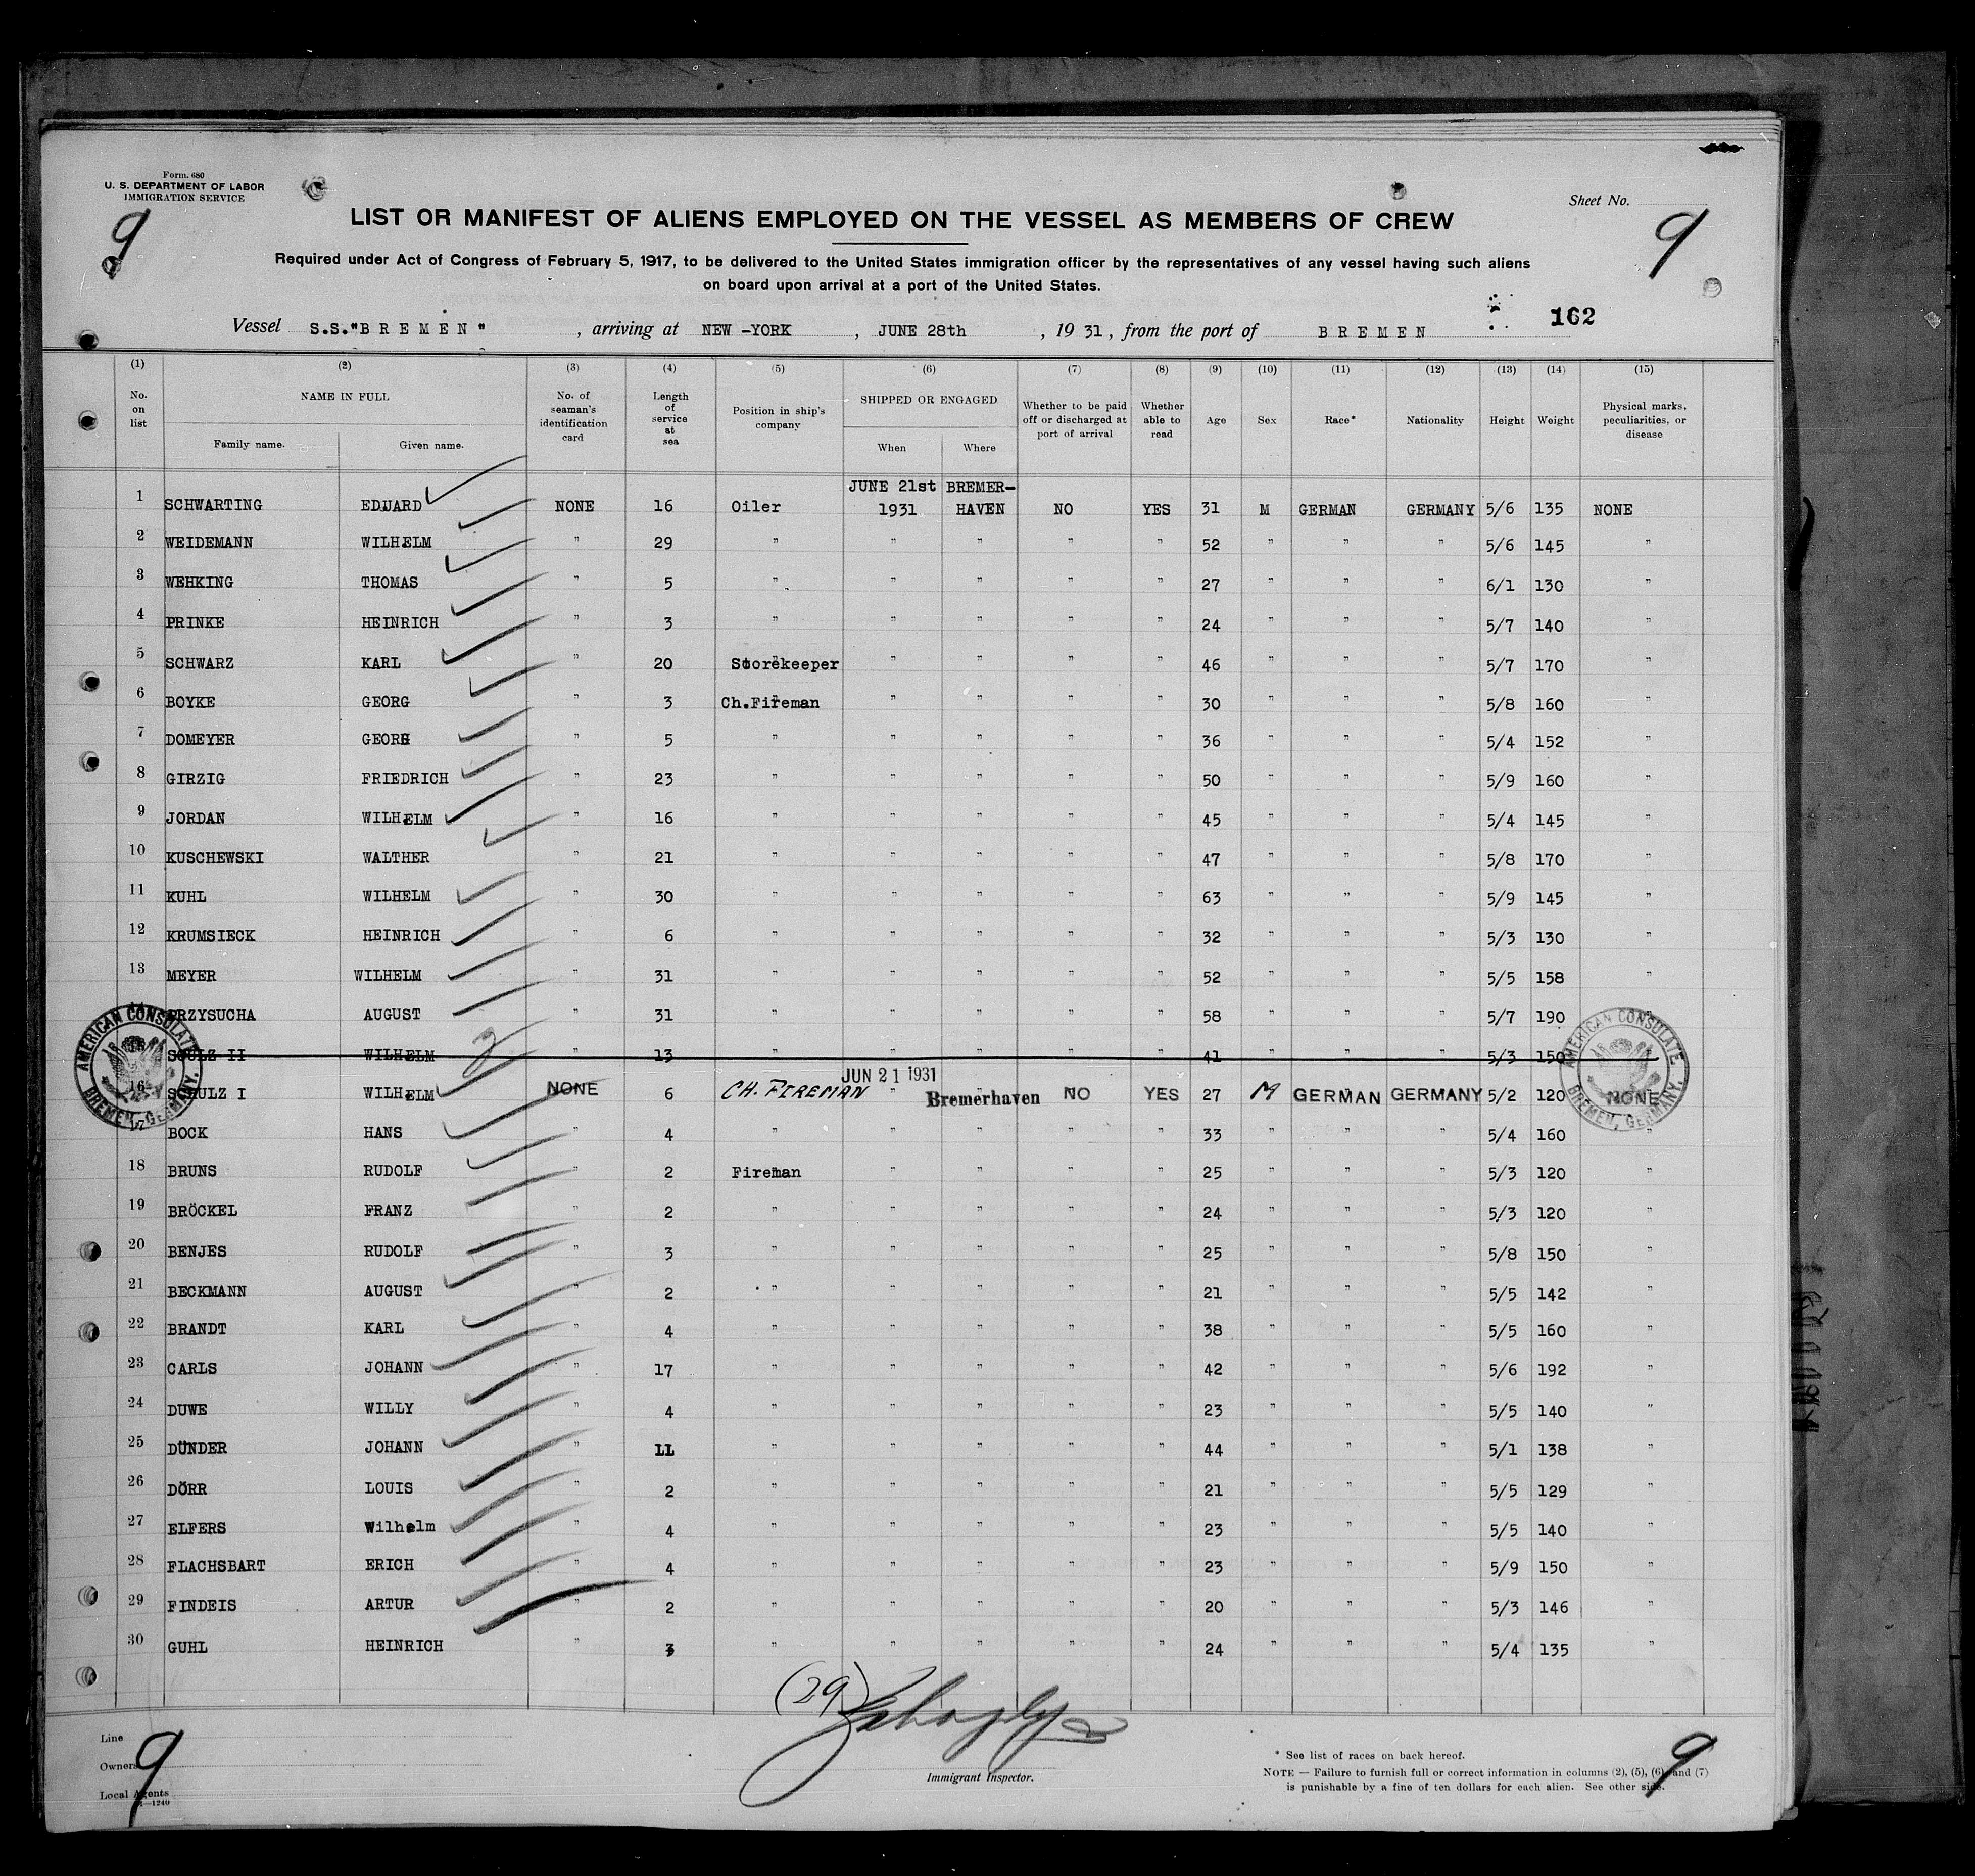 Form. 680
U. S. DEPARTMENT OF LABOR
IMMIGRATION SERVICE
Sheet No.
9
9
LIST OR MANIFEST OF ALIENS EMPLOYED ON THE VESSEL AS MEMBERS OF CREW
Required under Act of Congress of February 5, 1917, to be delivered to the United States immigration officer by the representatives of any vessel having such aliens
on board upon arrival at a port of the United States.
162
Vessel S.S."BREMEN" , arriving at NEW-YORK , JUNE 28th , 1931, from the port of BREMEN
(1) (2) (3) (4) (5) (6) (7) (8) (9) (10) (11) (12) (13) (14) (15)
No. on list NAME IN FULL Family name. Given name. No. of seaman's identification card Length of service at sea Position in ship's company SHIPPED OR ENGAGED When Where Whether to be paid off or discharged at port of arrival Whether able to read Age Sex Race* Nationality Height Weight Physical marks, peculiarities, or disease
1 SCHWARTING EDUARD NONE 16 Oiler JUNE 21st 1931 BREMER-HAVEN NO YES 31 M GERMAN GERMANY 5/6 135 NONE
2 WEIDEMANN WILHELM " 29 " " " " " 52 " " " 5/6 145 "
3 WEHKING THOMAS " 5 " " " " " 27 " " " 6/1 130 "
4 PRINKE HEINRICH " 3 " " " " " 24 " " " 5/7 140 "
5 SCHWARZ KARL " 20 Storekeeper " " " " 46 " " " 5/7 170 "
6 BOYKE GEORG " 3 Ch.Fireman " " " " 30 " " " 5/8 160 "
7 DOMEYER GEORG " 5 " " " " " 36 " " " 5/4 152 "
8 GIRZIG FRIEDRICH " 23 " " " " " 50 " " " 5/9 160 "
9 JORDAN WILHELM " 16 " " " " " 45 " " " 5/4 145 "
10 KUSCHEWSKI WALTHER " 21 " " " " " 47 " " " 5/8 170 "
11 KUHL WILHELM " 30 " " " " " 63 " " " 5/9 145 "
12 KRUMSIECK HEINRICH " 6 " " " " " 32 " " " 5/3 130 "
13 MEYER WILHELM " 31 " " " " " 52 " " " 5/5 158 "
14 PRZYSUCHA AUGUST " 31 " " " " " 58 " " " 5/7 190 "
15 SCULZ II WILHELM " 13 " " " " " 41 " " " 5/3 150 "
16 SCHULZ I WILHELM NONE 6 CH. FIREMAN JUN 21 1931 Bremerhaven NO YES 27 M GERMAN GERMANY 5/2 120 NONE
17 BOCK HANS " 4 " " " " " 33 " " " 5/4 160 "
18 BRUNS RUDOLF " 2 Fireman " " " " 25 " " " 5/3 120 "
19 BRÖCKEL FRANZ " 2 " " " " " 24 " " " 5/3 120 "
20 BENJES RUDOLF " 3 " " " " " 25 " " " 5/8 150 "
21 BECKMANN AUGUST " 2 " " " " " 21 " " " 5/5 142 "
22 BRANDT KARL " 4 " " " " " 38 " " " 5/5 160 "
23 CARLS JOHANN " 17 " " " " " 42 " " " 5/6 192 "
24 DUWE WILLY " 4 " " " " " 23 " " " 5/5 140 "
25 DÜNDER JOHANN " 11 " " " " " 44 " " " 5/1 138 "
26 DÖRR LOUIS " 2 " " " " " 21 " " " 5/5 129 "
27 ELFERS Wilhelm " 4 " " " " " 23 " " " 5/5 140 "
28 FLACHSBART ERICH " 4 " " " " " 23 " " " 5/9 150 "
29 FINDEIS ARTUR " 2 " " " " " 20 " " " 5/3 146 "
30 GUHL HEINRICH " 3 " " " " " 24 " " " 5/4 135 "
AMERICAN CONSULATE BREMEN, GERMANY.
AMERICAN CONSULATE BREMEN, GERMANY.
(29)
Immigrant Inspector.
Line
Owners
Local Agents
9
* See list of races on back hereof.
NOTE — Failure to furnish full or correct information in columns (2), (5), (6), and (7)
is punishable by a fine of ten dollars for each alien. See other side.
9